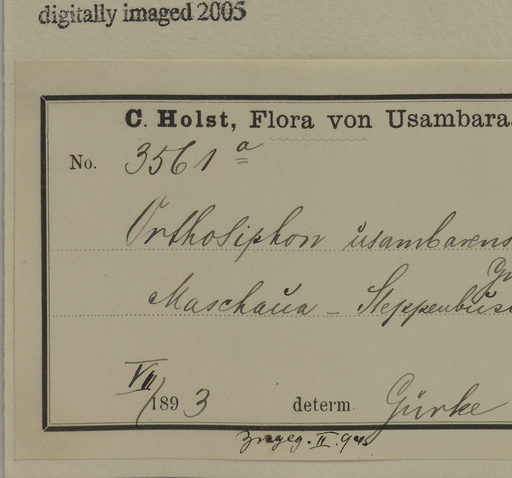 digitally imaged 2005
C. Holst, Flora von Usambara.
No. 3561 a
Orthosiphon usambarens
Gü
Maschaüa - Steppenbüs
VII/1893 determ. Gürke
II.94.